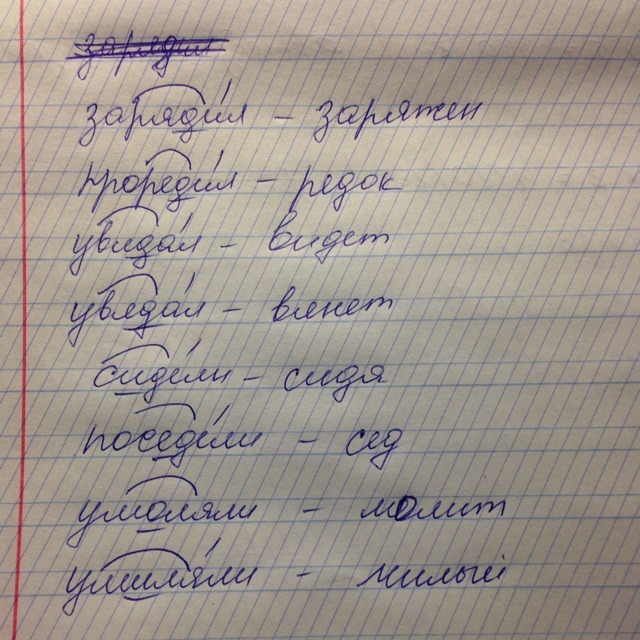 зарядѝл – заряжен
проредѝл – редок
увида́л – видет
увяда́л – вянет
сидéли – сидя
поседéли – сед
умоляли – молит
умиля́ли – милый